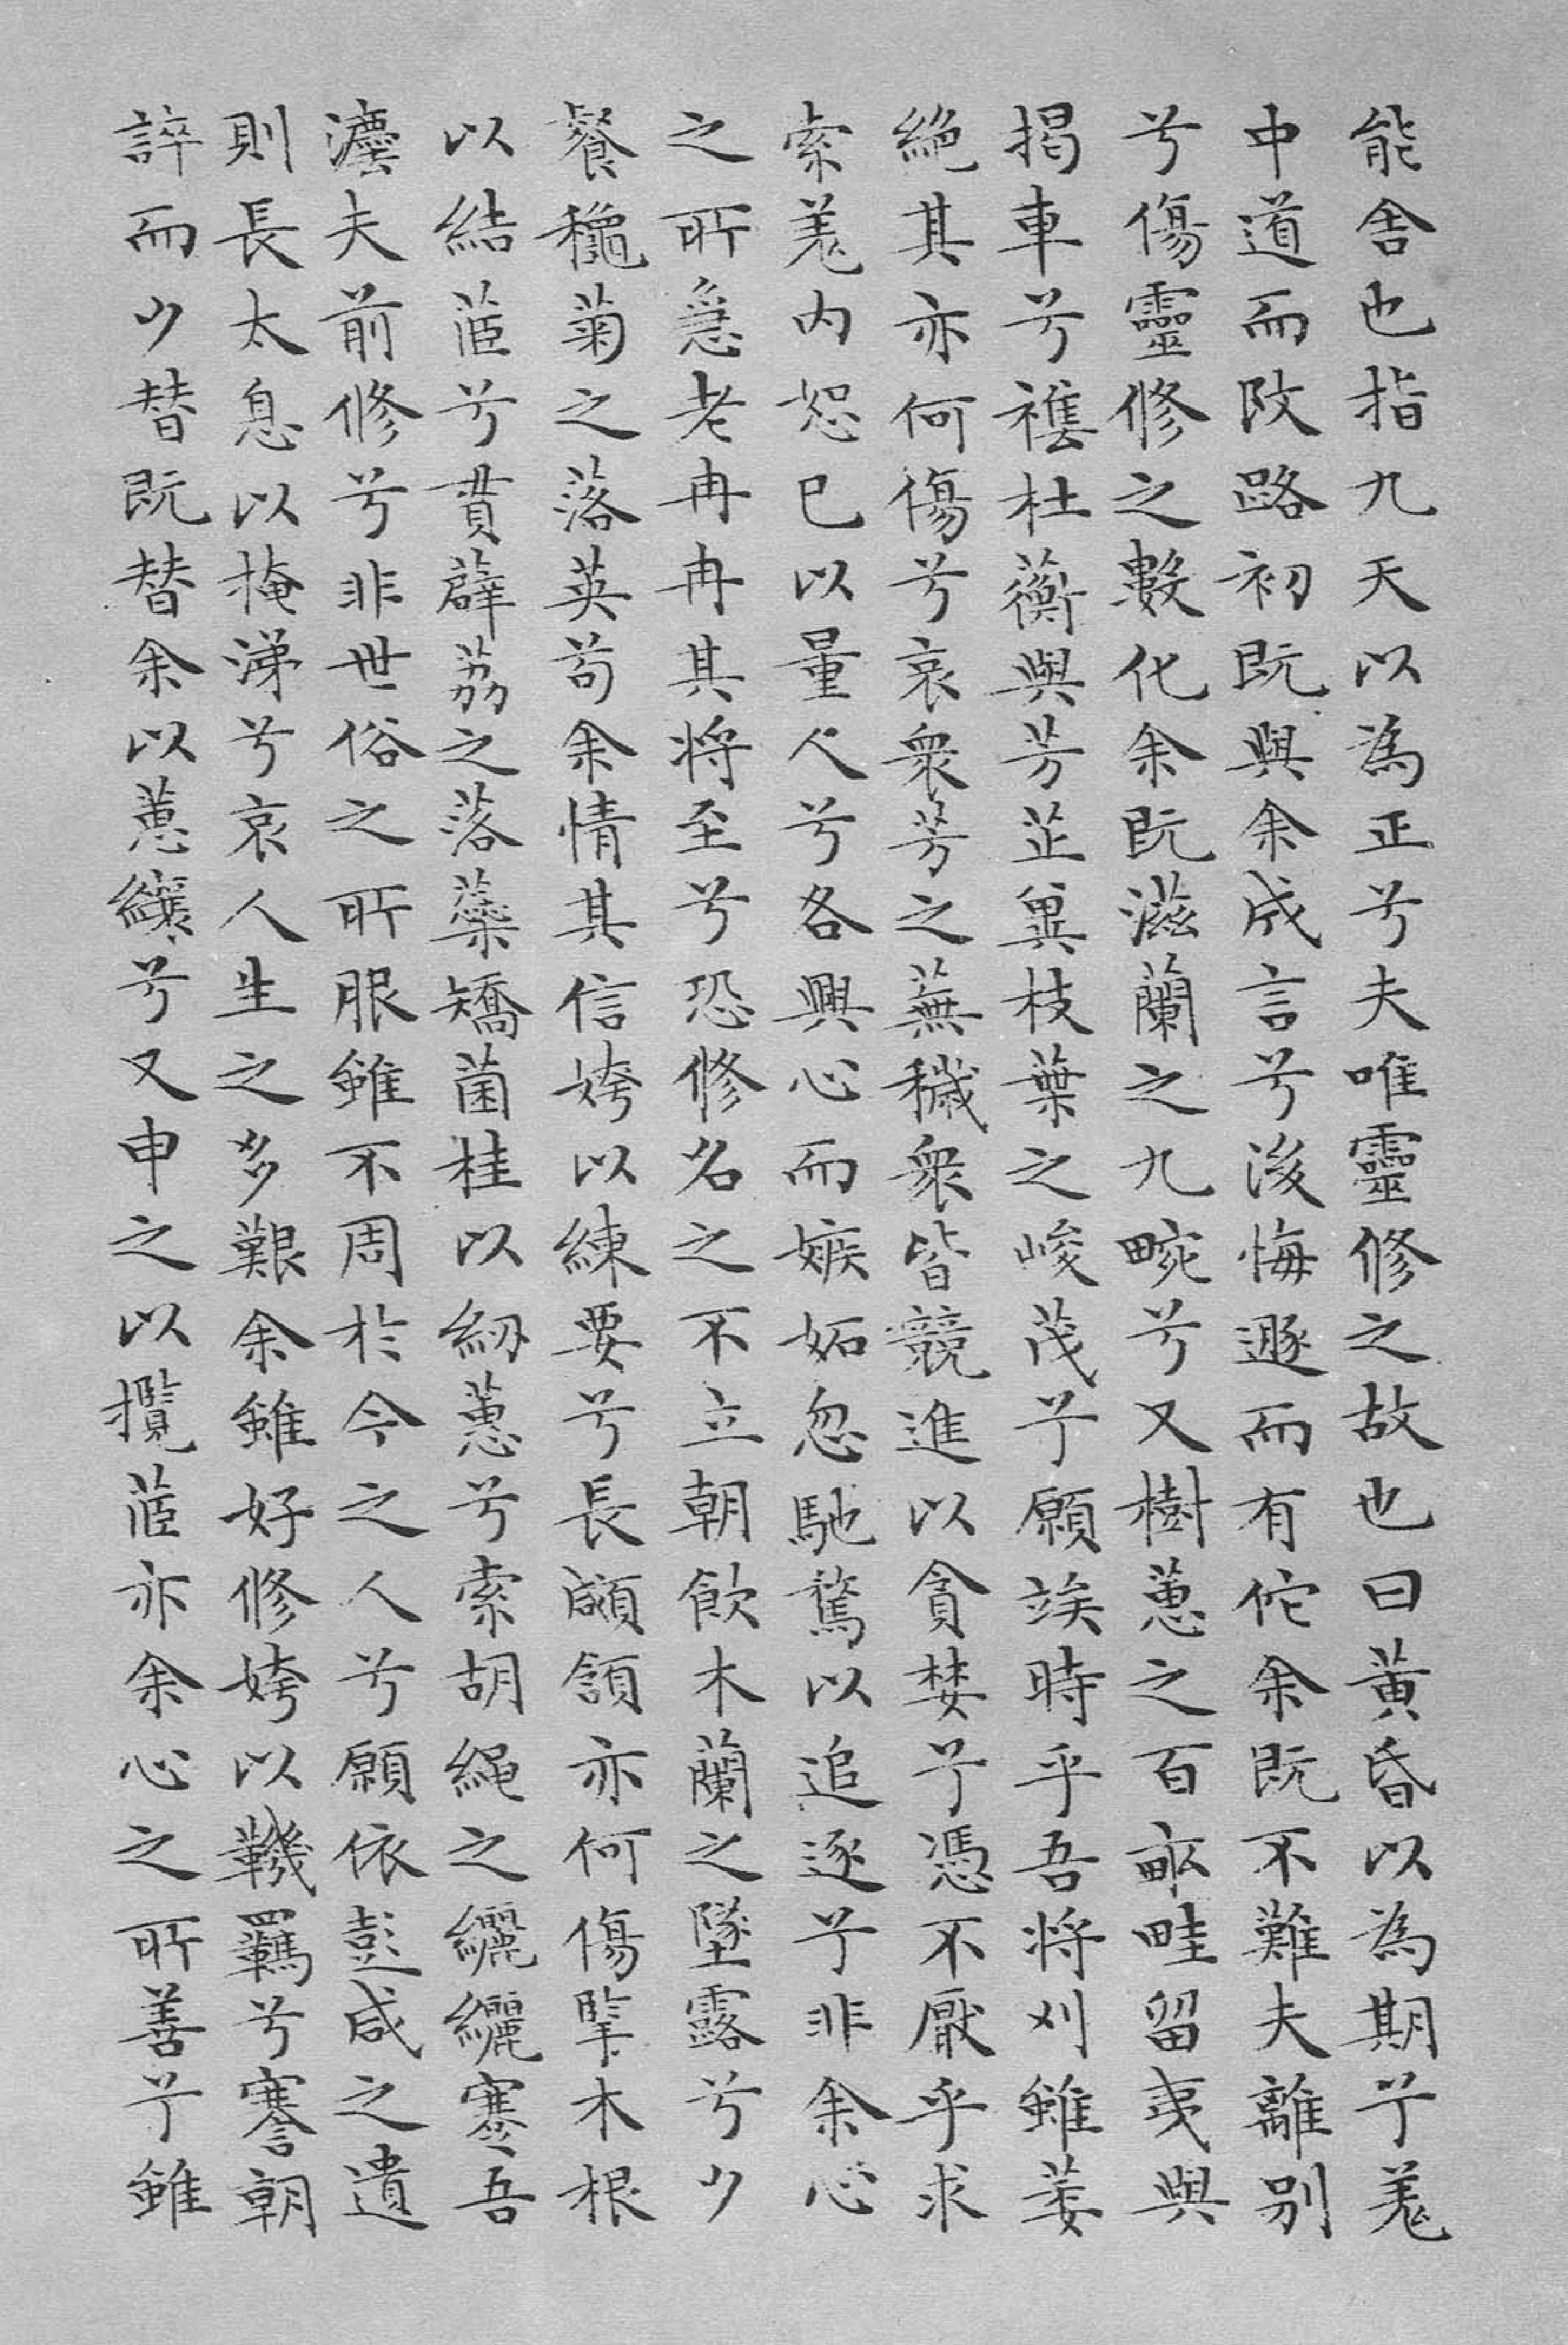 能舍也指九天以為正兮夫唯靈修之故也曰黃昏以為期兮羌
中道而改路初既與余成言兮後悔遯而有佗余既不難夫離別
兮傷靈修之數化余既滋蘭之九畹兮又樹蕙之百畝畦留夷與
揭車兮襍杜蘅與芳芷兾枝葉之峻茂兮願竢時乎吾將刈雖萎
絕其亦何傷兮哀衆芳之蕪穢衆皆競進以貪婪兮憑不厭乎求
索羌內恕己以量人兮各興心而嫉妬忽馳騖以追逐兮非余心
之所急老冉冉其將至兮恐修名之不立朝飲木蘭之墜露兮夕
餐秋菊之落英苟余情其信姱以練要兮長顑頷亦何傷掔木根
以結茝兮貫薜荔之落蘂矯菌桂以紉蕙兮索胡繩之纚纚謇吾
灋夫前修兮非世俗之所服雖不周於今之人兮願依彭咸之遺
則長太息以掩涕兮哀人生之多艱余雖好修姱以鞿羈兮謇朝
誶而夕替既替余以蕙纕兮又申之以攬茝亦余心之所善兮雖